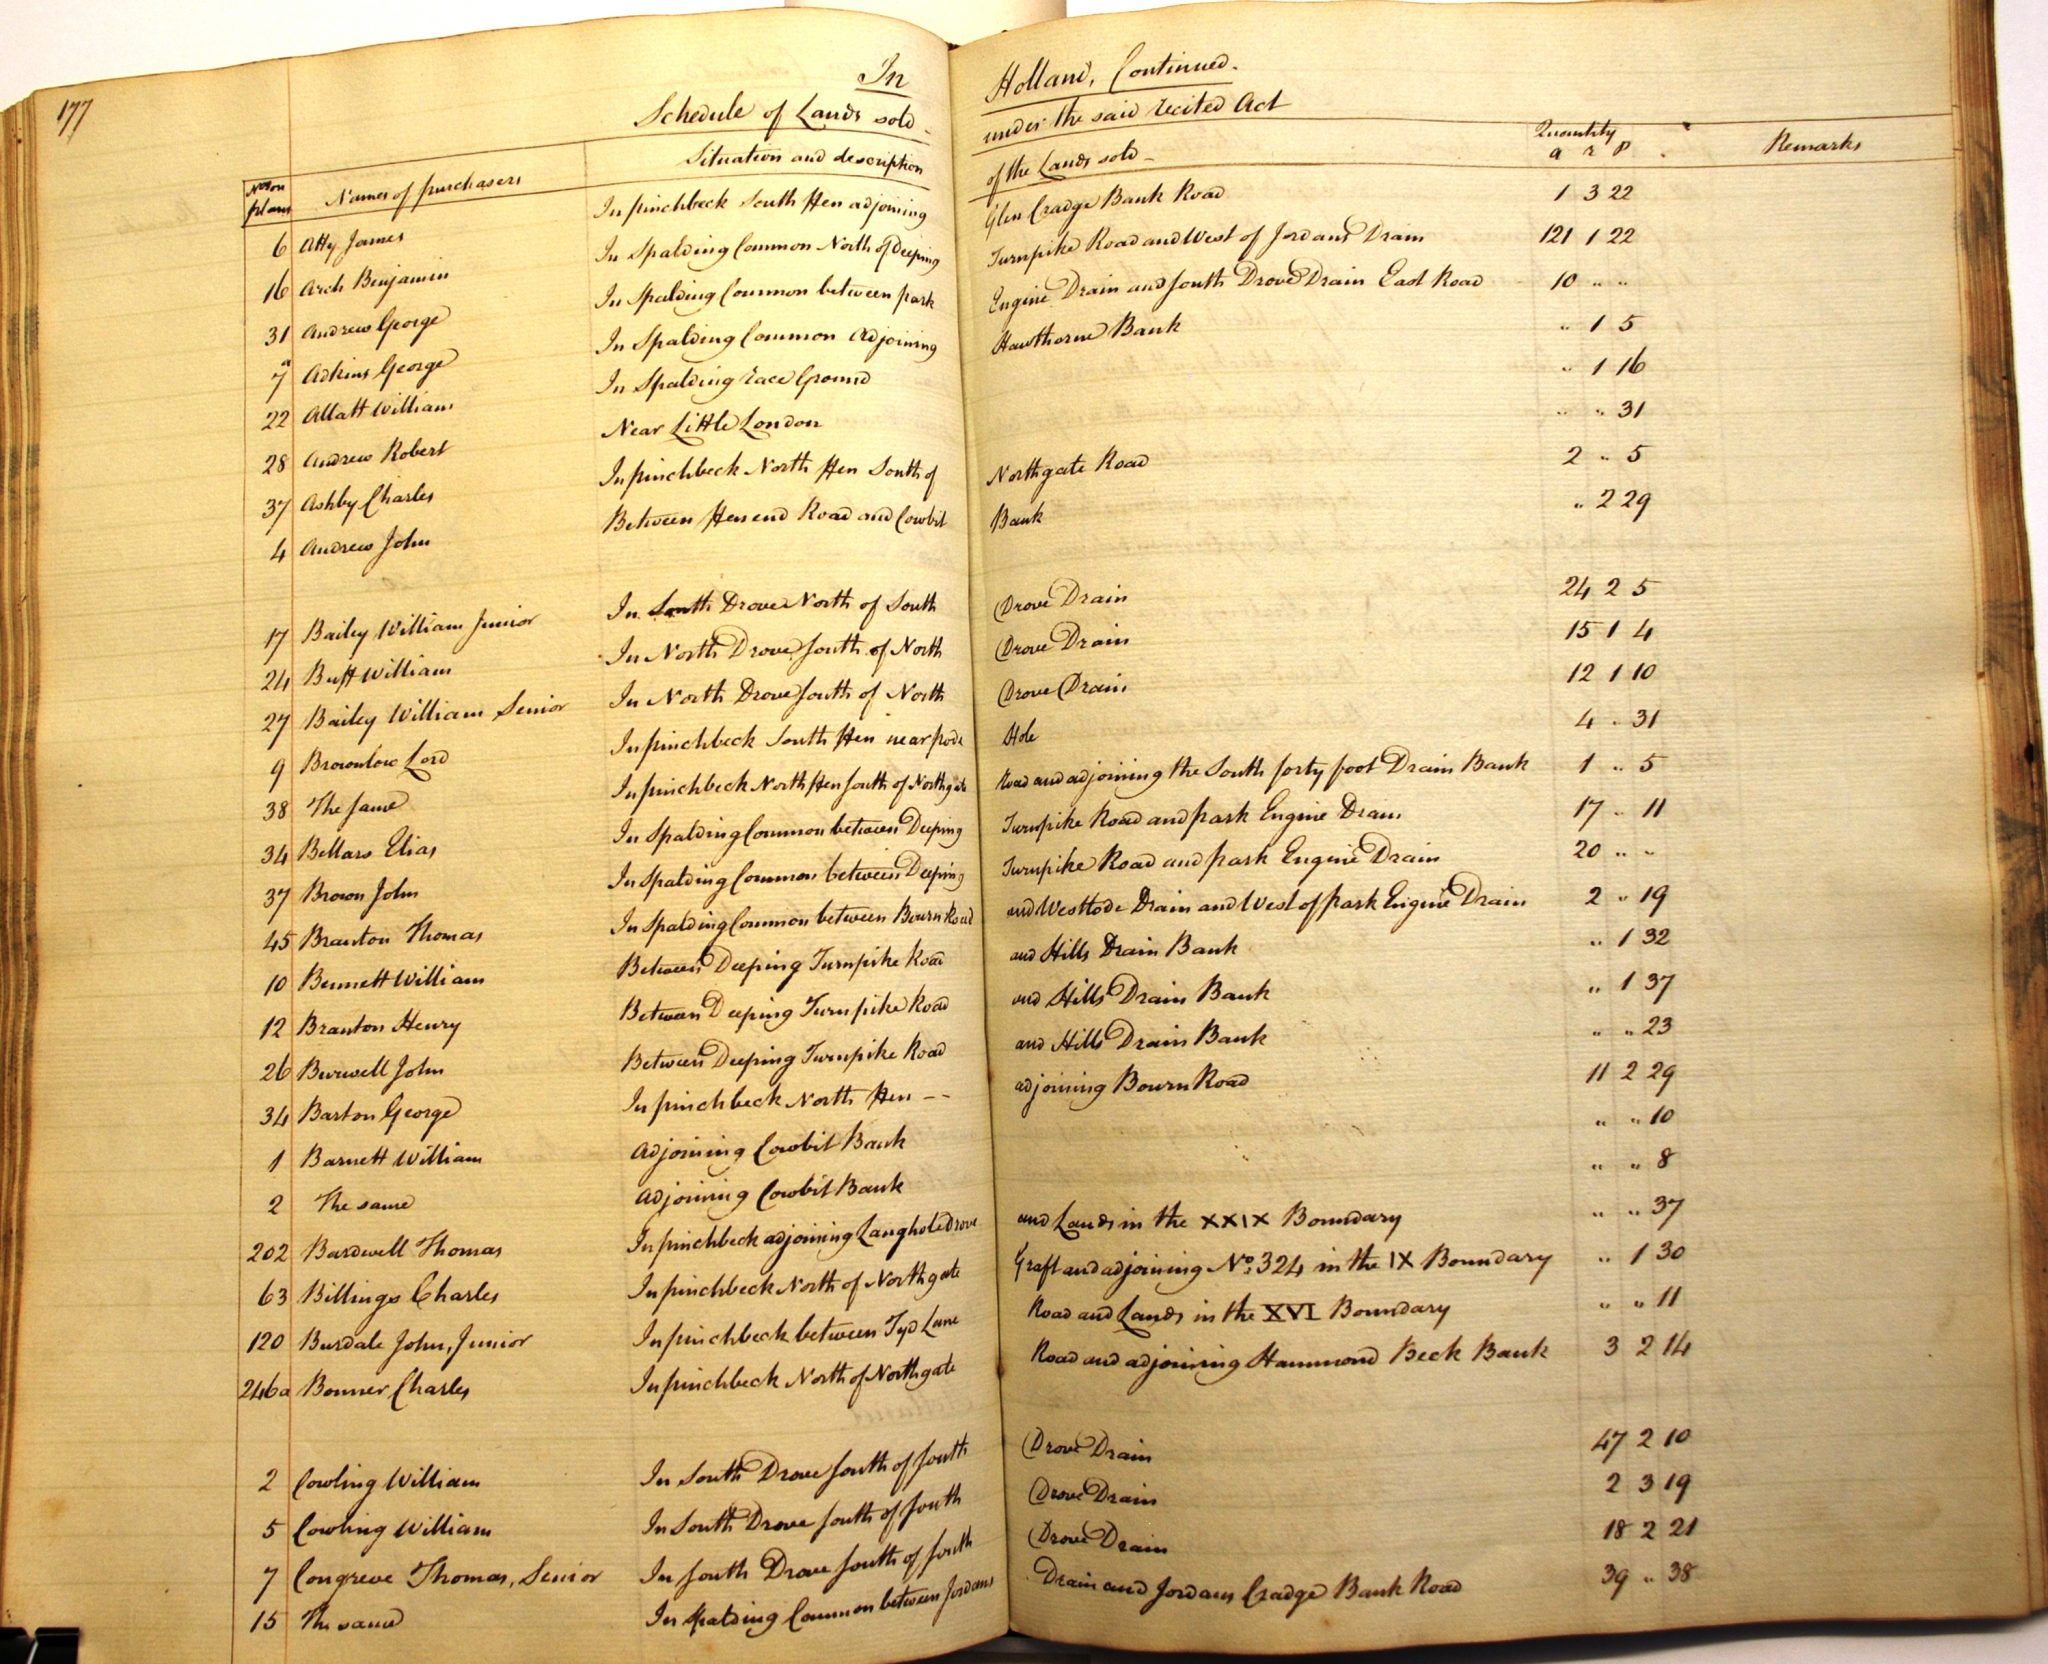 177
In Holland, Continued.
Schedule of Lands sold under the said recited Act
Nos on plans Names of purchasers Situation and description of the Lands sold Quantity a r p Remarks
6 Atty James In pinchbeck South Fen adjoining Glen Cradge Bank Road 1 3 22
16 Arch Benjamin In Spalding Common North of Deeping Turnpike Road and West of Jordans Drain 121 1 22
31 Andrew George In Spalding Common between park Engine Drain and South Drove Drain East Road 10 " "
7a Adkins George In Spalding Common Adjoining Hawthorne Bank " 1 5
22 Allatt William In Spalding race Ground " 1 16
28 Andrew Robert Near Little London " " 31
37 Ashby Charles In pinchbeck North Fen South of Northgate Road 2 " 5
4 Andrew John Between Fen end Road and Cowbit Bank " 2 29
17 Bailey William Junior In South Drove North of South Drove Drain 24 2 5
24 Buff William In North Drove South of North Drove Drain 15 1 4
27 Bailey William Senior In North Drove South of North Drove Drain 12 1 10
9 Brownlow Lord In pinchbeck South Fen near pode Hole 4 " 31
38 The same In pinchbeck North Fen South of Northgate Road and adjoining the South forty foot Drain Bank 1 " 5
34 Bellars Elias In Spalding Common between Deeping Turnpike Road and park Engine Drain 17 " 11
37 Brown John In Spalding Common between Deeping Turnpike Road and park Engine Drain 20 " "
45 Branton Thomas In Spalding Common between Bourn Road and Westlode Drain and West of park Engine Drain 2 " 19
10 Bennett William Between Deeping Turnpike Road and Hills Drain Bank " 1 32
12 Branton Henry Between Deeping Turnpike Road and Hills Drain Bank " 1 37
26 Burwell John Between Deeping Turnpike Road and Hills Drain Bank " " 23
34 Barton George In pinchbeck North Fen -- adjoining Bourn Road 11 2 29
1 Barnett William Adjoining Cowbit Bank " " 10
2 The same Adjoining Cowbit Bank " " 8
202 Bardwell Thomas In pinchbeck adjoining Langhole Drove and Lands in the XXIX Boundary " " 37
63 Billings Charles In pinchbeck North of Northgate Graft and adjoining No. 324 in the IX Boundary " 1 30
120 Burdale John, Junior In pinchbeck between Tyd Lane Road and Lands in the XVI Boundary " " 11
246a Bonner Charles In pinchbeck North of Northgate Road and adjoining Hammond Beck Bank 3 2 14
2 Cowling William In South Drove South of South Drove Drain 47 2 10
5 Cowling William In South Drove South of South Drove Drain 2 3 19
7 Congreve Thomas, Senior In South Drove South of South Drove Drain 18 2 21
15 The same In Spalding Common between Jordans Drain and Jordans Cradge Bank Road 39 " 38